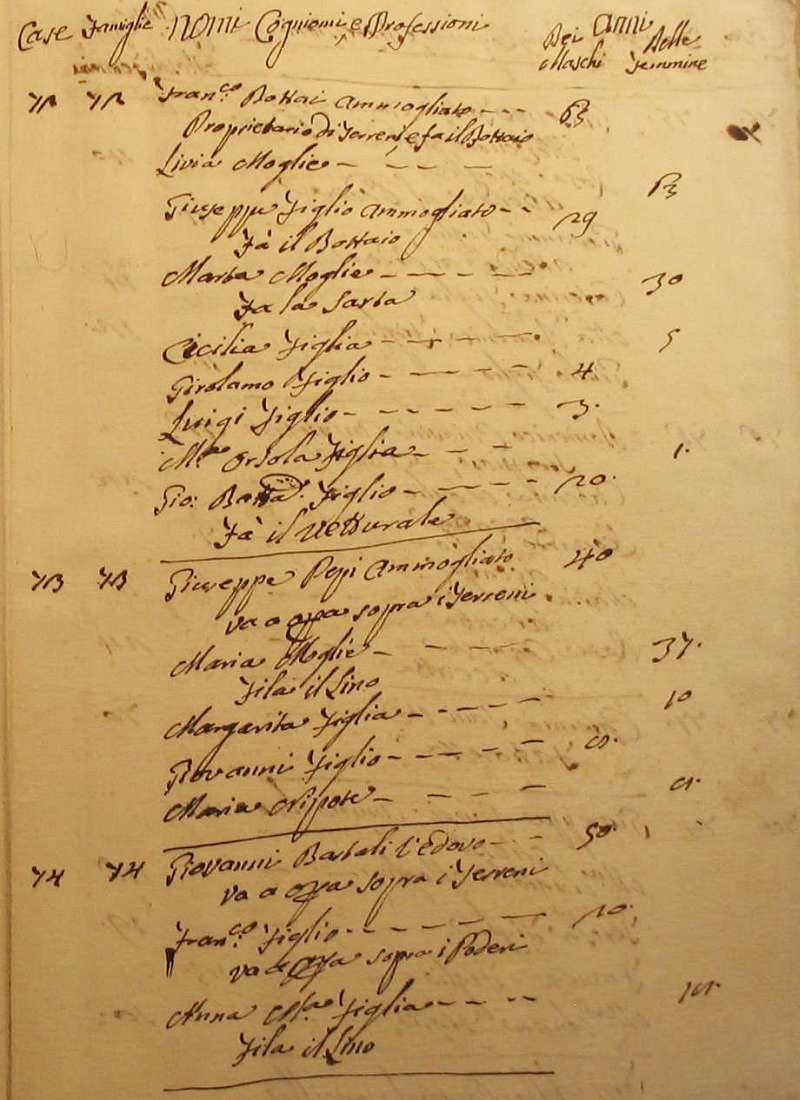 Case Famiglie Nomi Cognomi e Professioni Anni
Dei Maschi Delle Femmine
72 72 Fran.co Bottai Ammogliato - - - 63
Proprietario di Terreni, e fa il Bottaio
Livia Moglie - - - - 63
Giuseppe Figlio Ammogliato - - 29
Fà il Bottaio
Marta Moglie - - - - - 30
Fa la Sarta
Cicilia Figlia - - - - - 5
Girolamo Figlio - - - - - 4
Luigi Figlio - - - - - 3.
M.a Orsola Figlia - - - 1.
Gio: Batta. Figlio - - - - - 20.
Fà il Vetturale
73 73 Giuseppe Pepi Ammogliato 40
va a opra sopra i Terreni
Maria Moglie - - - - 37.
Fila il Lino
Margarita Figlia - - - - - 10
Giovanni Figlio - - - - -
Maria Nipote - - - -
74 74 Giovanni Bartali Vedovo - - - 50.
va a opra sopra i Terreni
Fran.co Figlio - - - - - - 20.
va a opra sopra i Poderi
Anna M.a Figlia - - - -
Fila il Lino